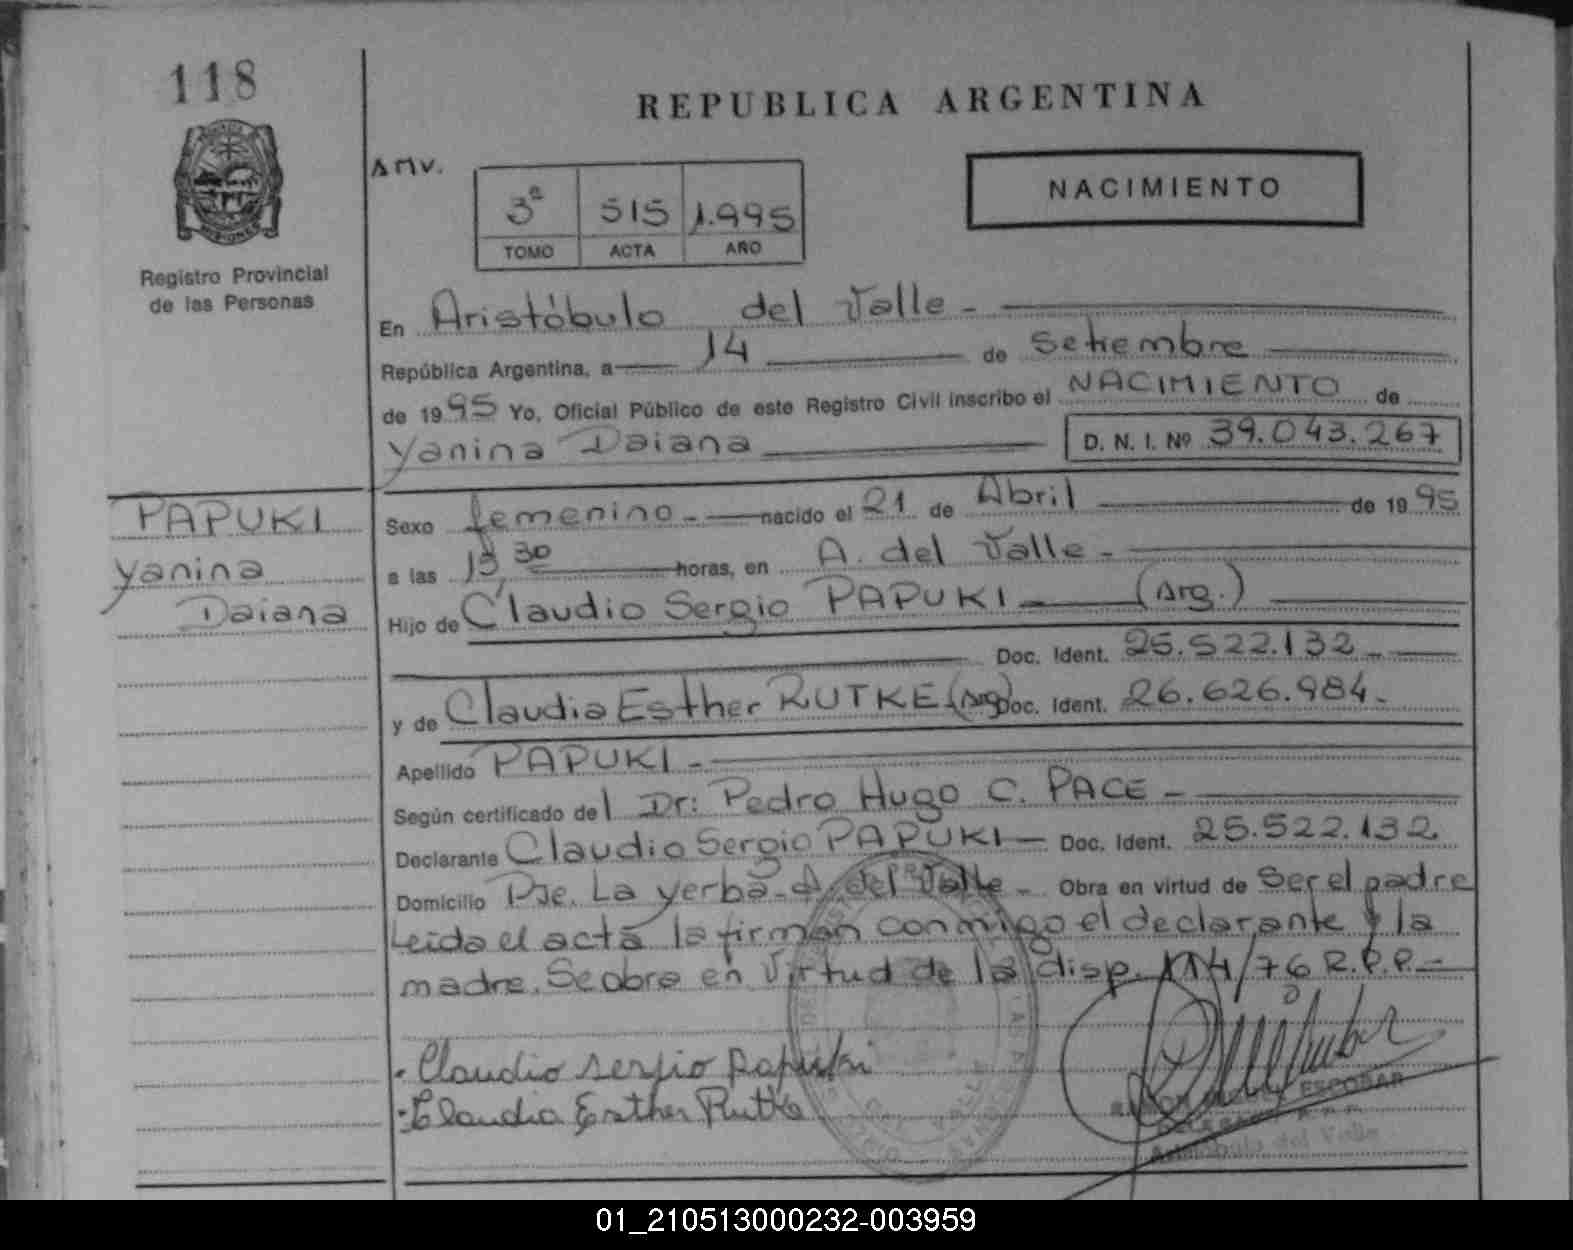 118
REPUBLICA ARGENTINA
MISIONES
Registro Provincial
de las Personas
AMV.
3ª 515 1.995
TOMO ACTA AÑO
NACIMIENTO
En Aristóbulo del Valle -
República Argentina, a 14 de Setiembre
de 1995 Yo, Oficial Público de este Registro Civil inscribo el NACIMIENTO de
Yanina Daiana D. N. I. Nº 39.043.267
PAPUKI
Yanina
Daiana
Sexo femenino - nacido el 21 de Abril de 1995
a las 15,30 horas, en A. del Valle -
Hijo de Claudio Sergio PAPUKI - (Arg.)
Doc. Ident. 25.522.132 -
y de Claudia Esther RUTKE (Arg) Doc. Ident. 26.626.984 -
Apellido PAPUKI -
Según certificado del Dr: Pedro Hugo C. PACE -
Declarante Claudio Sergio PAPUKI - Doc. Ident. 25.522.132
Domicilio Pje. La yerba - A. del Valle - Obra en virtud de Ser el padre
Leida el acta la firman conmigo el declarante y la
madre. Se obra en virtud de la disp. 114/76 R.P.P. -
Claudio sergio Papuki
Claudia Esther Rutke
ESCOBAR
Aristóbulo del Valle
01_210513000232-003959